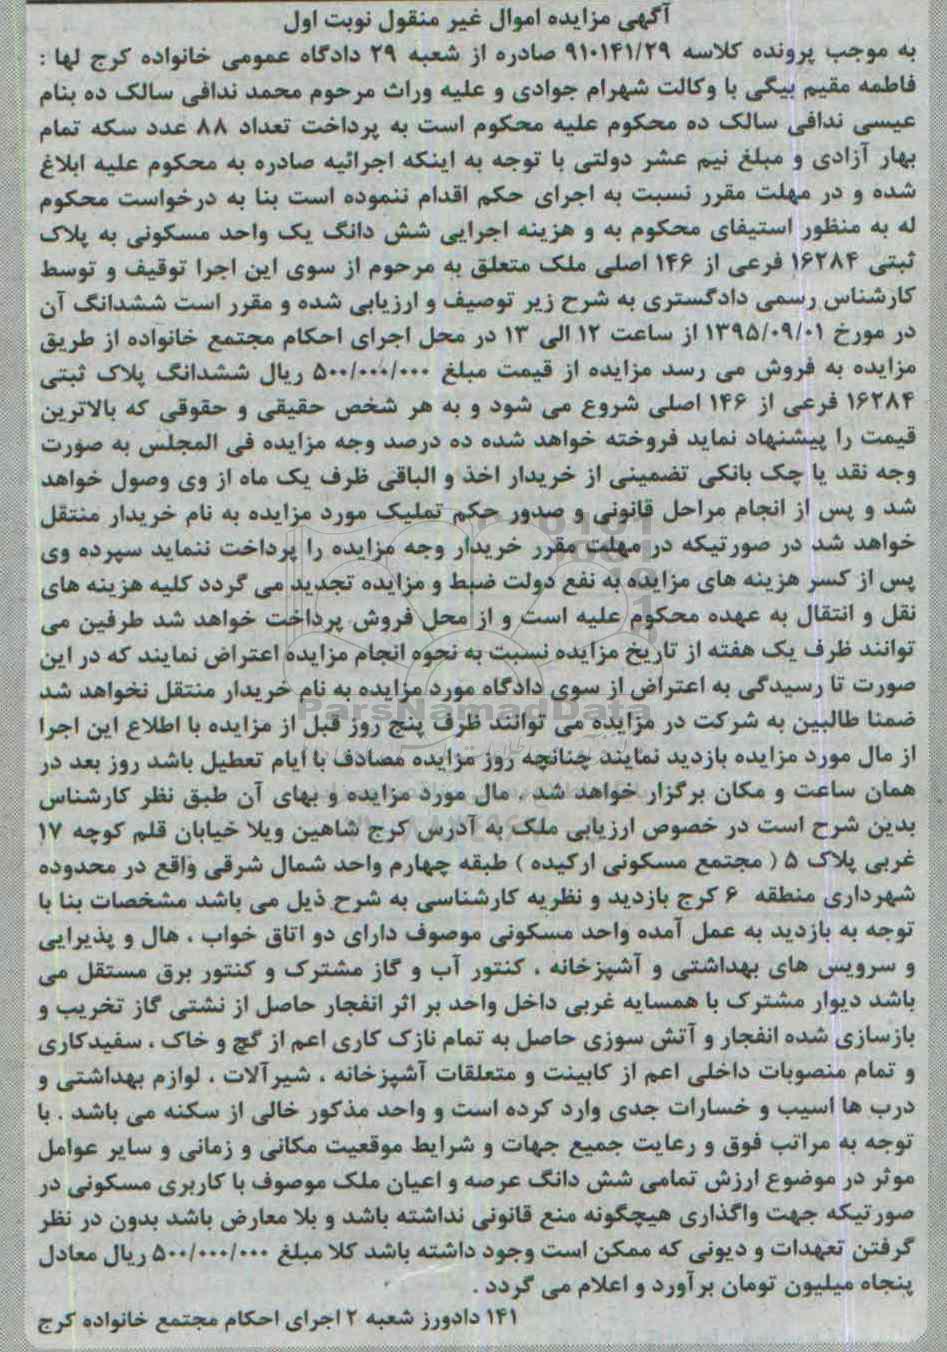 آگهی مزایده اموال غیر منقول نوبت اول
به موجب پرونده کلاسه ۹۱۰۱۴۱/۲۹ صادره از شعبه ۲۹ دادگاه عمومی خانواده کرج لها :
فاطمه مقیم بیگی با وکالت شهرام جوادی و علیه وراث مرحوم محمد ندافی سالک ده بنام
عیسی ندافی سالک ده محکوم علیه محکوم است به پرداخت تعداد ۸۸ عدد سکه تمام
بهار آزادی و مبلغ نیم عشر دولتی با توجه به اینکه اجرائیه صادره به محکوم علیه ابلاغ
شده و در مهلت مقرر نسبت به اجرای حکم اقدام ننموده است بنا به درخواست محکوم
له به منظور استیفای محکوم به و هزینه اجرایی شش دانگ یک واحد مسکونی به پلاک
ثبتی ۱۶۲۸۴ فرعی از ۱۴۶ اصلی ملک متعلق به مرحوم از سوی این اجرا توقیف و توسط
کارشناس رسمی دادگستری به شرح زیر توصیف و ارزیابی شده و مقرر است ششدانگ آن
در مورخ ۱۳۹۵/۰۹/۰۱ از ساعت ۱۲ الی ۱۳ در محل اجرای احکام مجتمع خانواده از طریق
مزایده به فروش می رسد مزایده از قیمت مبلغ ۵۰۰/۰۰۰/۰۰۰ ریال ششدانگ پلاک ثبتی
۱۶۲۸۴ فرعی از ۱۴۶ اصلی شروع می شود و به هر شخص حقیقی و حقوقی که بالاترین
قیمت را پیشنهاد نماید فروخته خواهد شده ده درصد وجه مزایده فی المجلس به صورت
وجه نقد یا چک بانکی تضمینی از خریدار اخذ و الباقی ظرف یک ماه از وی وصول خواهد
شد و پس از انجام مراحل قانونی و صدور حکم تملیک مورد مزایده به نام خریدار منتقل
خواهد شد در صورتیکه در مهلت مقرر خریدار وجه مزایده را پرداخت ننماید سپرده وی
پس از کسر هزینه های مزایده به نفع دولت ضبط و مزایده تجدید می گردد کلیه هزینه های
نقل و انتقال به عهده محکوم علیه است و از محل فروش پرداخت خواهد شد طرفین می
توانند ظرف یک هفته از تاریخ مزایده نسبت به نحوه انجام مزایده اعتراض نمایند که در این
صورت تا رسیدگی به اعتراض از سوی دادگاه مورد مزایده به نام خریدار منتقل نخواهد شد
ParsNamadData
ضمنا طالبین به شرکت در مزایده می توانند ظرف پنج روز قبل از مزایده با اطلاع این اجرا
از مال مورد مزایده بازدید نمایند چنانچه روز مزایده مصادف با ایام تعطیل باشد روز بعد در
همان ساعت و مکان برگزار خواهد شد . مال مورد مزایده و بهای آن طبق نظر کارشناس
بدین شرح است در خصوص ارزیابی ملک به آدرس کرج شاهین ویلا خیابان قلم کوچه ۱۷
غربی پلاک ۵ ( مجتمع مسکونی ارکیده ) طبقه چهارم واحد شمال شرقی واقع در محدوده
شهرداری منطقه ۶ کرج بازدید و نظریه کارشناسی به شرح ذیل می باشد مشخصات بنا با
توجه به بازدید به عمل آمده واحد مسکونی موصوف دارای دو اتاق خواب ، هال و پذیرایی
و سرویس های بهداشتی و آشپزخانه ، کنتور آب و گاز مشترک و کنتور برق مستقل می
باشد دیوار مشترک با همسایه غربی داخل واحد بر اثر انفجار حاصل از نشتی گاز تخریب و
بازسازی شده انفجار و آتش سوزی حاصل به تمام نازک کاری اعم از گچ و خاک ، سفیدکاری
و تمام منصوبات داخلی اعم از کابینت و متعلقات آشپزخانه ، شیرآلات ، لوازم بهداشتی و
درب ها اسیب و خسارات جدی وارد کرده است و واحد مذکور خالی از سکنه می باشد . با
توجه به مراتب فوق و رعایت جمیع جهات و شرایط موقعیت مکانی و زمانی و سایر عوامل
موثر در موضوع ارزش تمامی شش دانگ عرصه و اعیان ملک موصوف با کاربری مسکونی در
صورتیکه جهت واگذاری هیچگونه منع قانونی نداشته باشد و بلا معارض باشد بدون در نظر
گرفتن تعهدات و دیونی که ممکن است وجود داشته باشد کلا مبلغ ۵۰۰/۰۰۰/۰۰۰ ریال معادل
پنجاه میلیون تومان برآورد و اعلام می گردد .
۱۴۱ دادورز شعبه ۲ اجرای احکام مجتمع خانواده کرج